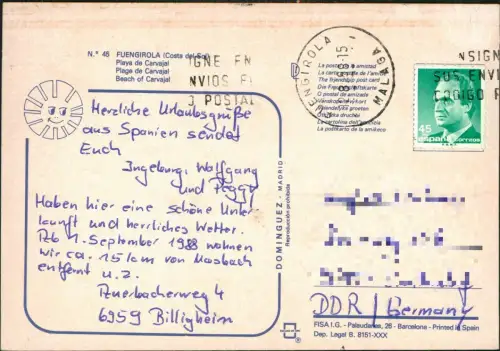 N.º 45 FUENGIROLA (Costa del Sol)
Playa de Carvajal
Plage de Carvajal
Beach of Carvajal
IGNE EN
NVIOS E
O POSTAL
FUENGIROLA
MALAGA
NSIGN
SUS ENVI
CODIGO P
La postal de la amistad
Die Freundschaftskarte
O postal da amizade
Vriendschapskaart
La cartolina dell'amicizia
La postkarto de la amikeco
45
España
correos
Herzliche Urlaubsgrüße
aus Spanien sendet
Euch
Ingeburg, Wolfgang
und Peggy
Haben hier eine schöne Unter
kunft und herrliches Wetter.
Ab 1. September 1988 wohnen
wir ca. 15 km von Mosbach
entfernt u. z.
Auerbacherweg 4
6959 Billigheim
DOMINGUEZ - MADRID
Reproducción prohibida
DDR / Germany
FISA I.G. - Palaudarias, 26 - Barcelona - Printed in Spain
Dep. Legal B. 8151-XXX